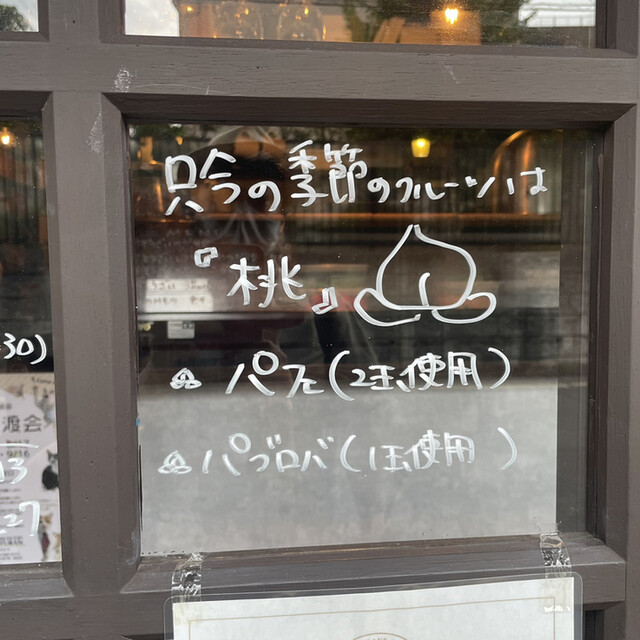 只今の季節のフルーツは
『桃』
パフェ(2玉使用)
パブロバ(1玉使用)
30)
渡会
9/16
13
27